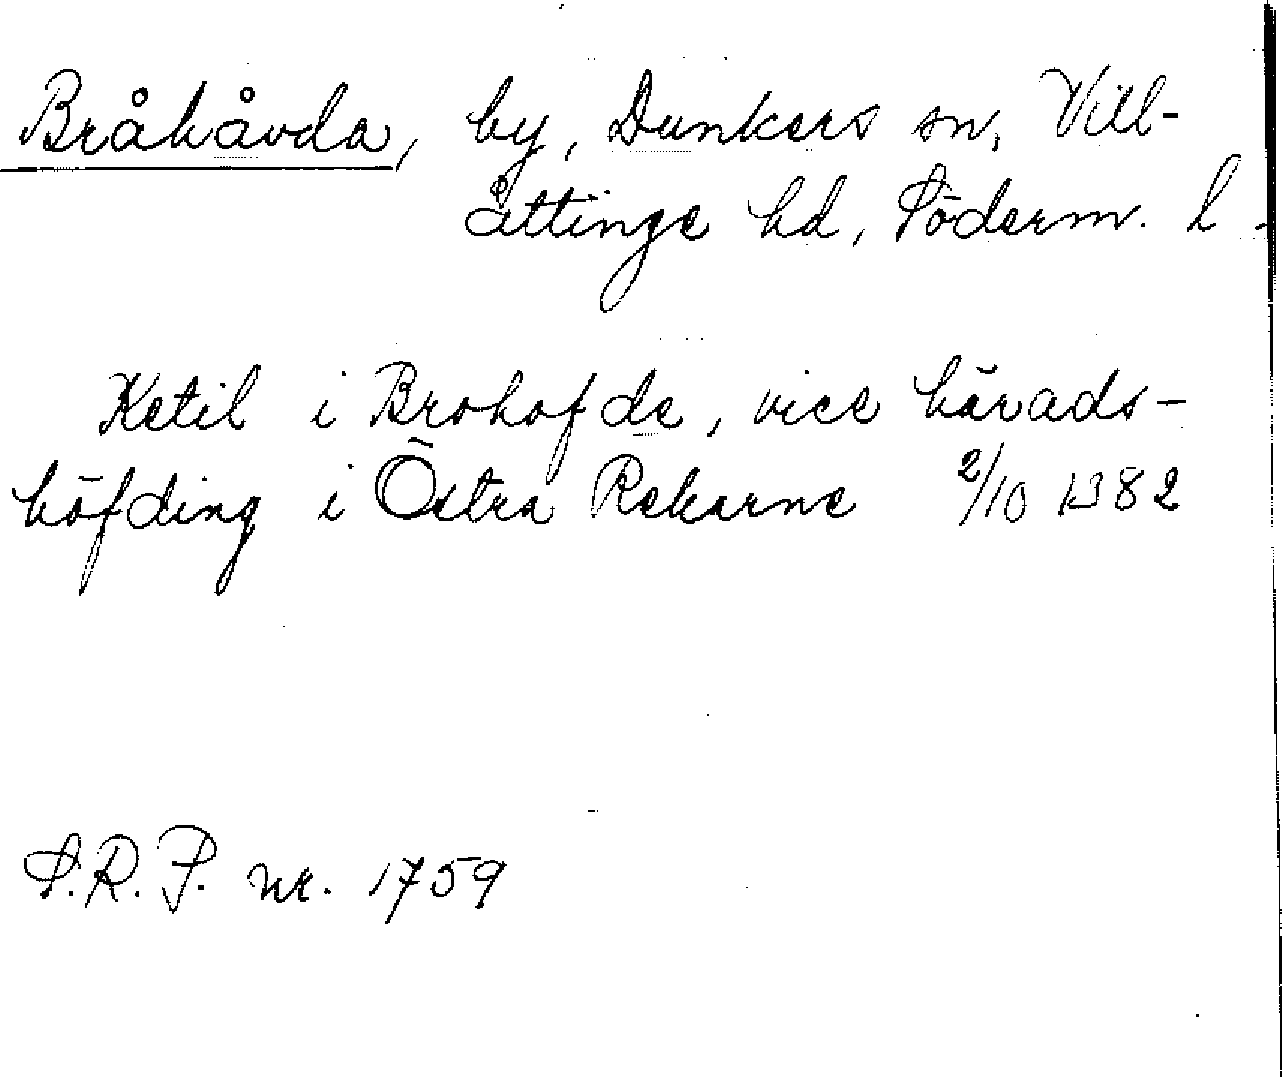 Bråhåvda, by, Dunkers sn, Vill-
åttinge hd, Söderm. l.
Ketil i Brohofde, vice härads-
höfding i Östra Rekarne 2/10 1382
S.R.P. nr. 1759